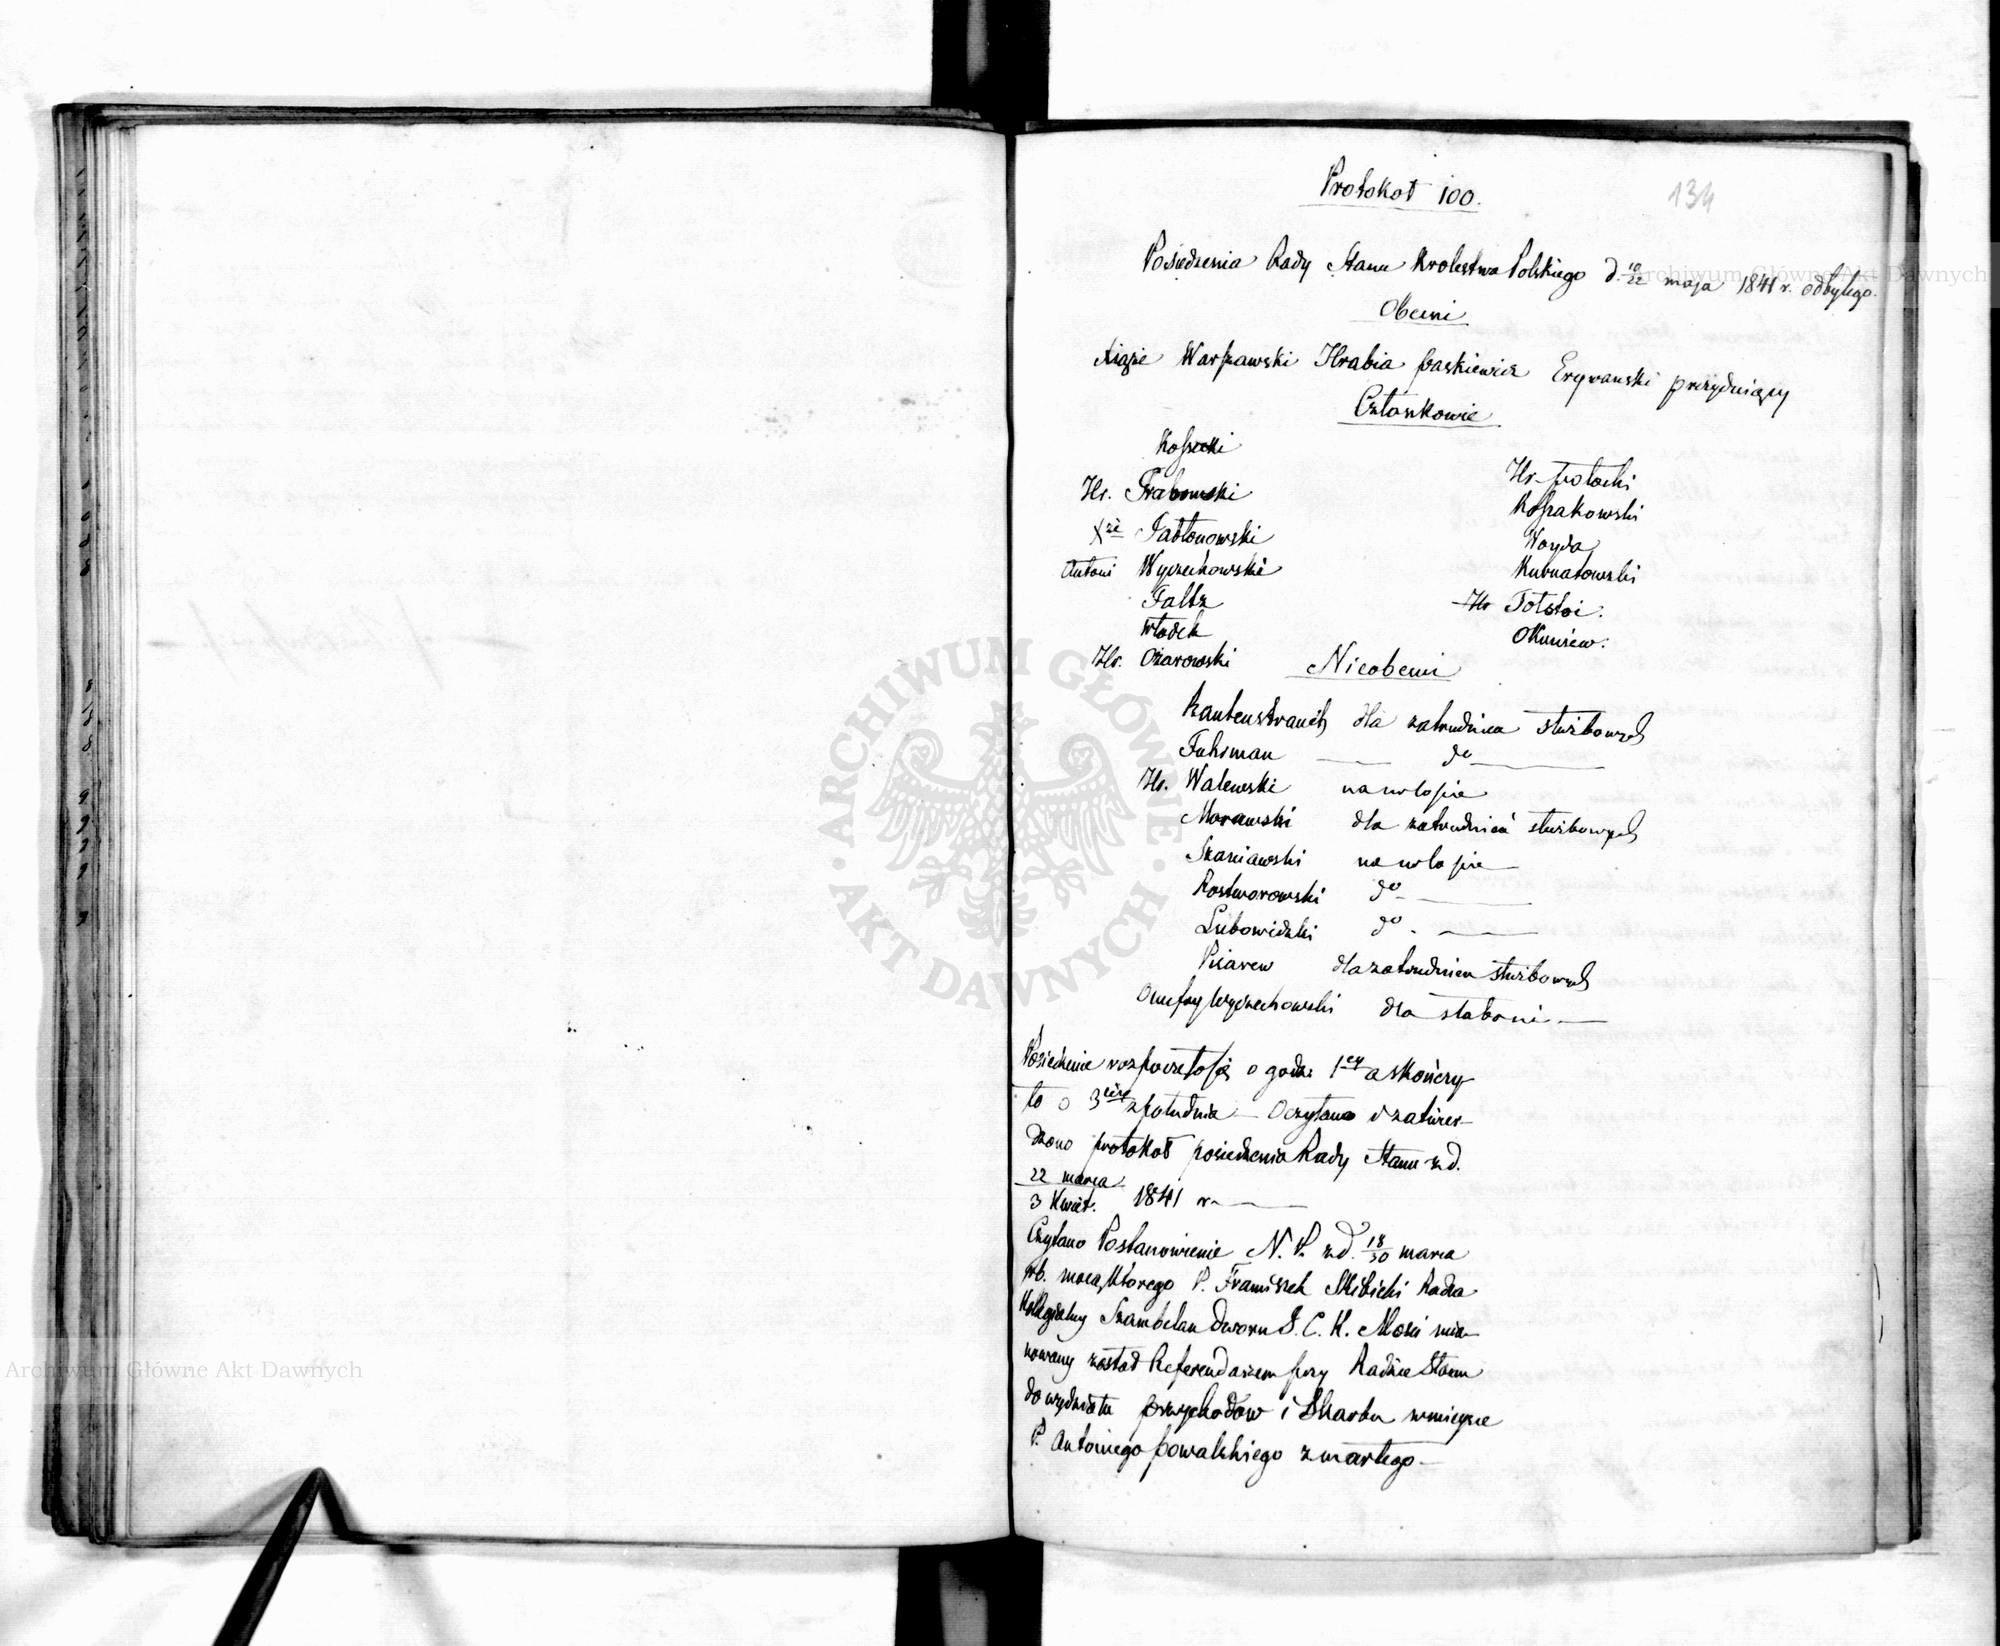 Protokół 100.
134
Posiedzenia Rady Stanu Królestwa Polskiego d. 10/22 maja 1841 r. odbytego.
Obecni
Xiąże Warszawski Hrabia Paskiewicz Erywanski prezydujący
Członkowie
Kossecki
Hr. Grabowski
Xże Jabłonowski
Antoni Wyczechowski
Faltz
Włodek
Hr. Ożarowski
Hr. Potocki
Kossakowski
Woyda
Kurnatowski
Hr Tołstoi.
Okuniew.
Nieobecni
Rautenstrauch dla zatrudnien służbowych
Fuhrman do
Hr. Walewski na urlopie
Morawski dla zatrudnień służbowych
Szaniawski na urlopie
Rostworowski do
Lubowidzki do
Pisarew dla zatrudnien służbowych
Onufry Wyczechowski dla słabości
Posiedzenie rozpoczęło się o godz: 1ey a skończy
ło o 3ciey z południa – Oczytano i zatwier-
dzono protokół posiedzenia Rady Stanu z d.
22 marca
3 Kwiet. 1841 r.
Czytano Postanowienie N. P. z d. 18/30 marca
rb. mocą którego P. Franciszek Skibicki Radca
Kollegialny Szambelan Dworu J. C. K. Mości mia-
nowany został Referendarzem przy Radzie Stanu
do wydziału przychodów i Skarbu w miejsce
P. Antoniego Kowalskiego zmarłego –
Archiwum Główne Akt Dawnych
Archiwum Główne Akt Dawnych
ARCHIWUM GŁÓWNE
AKT DAWNYCH